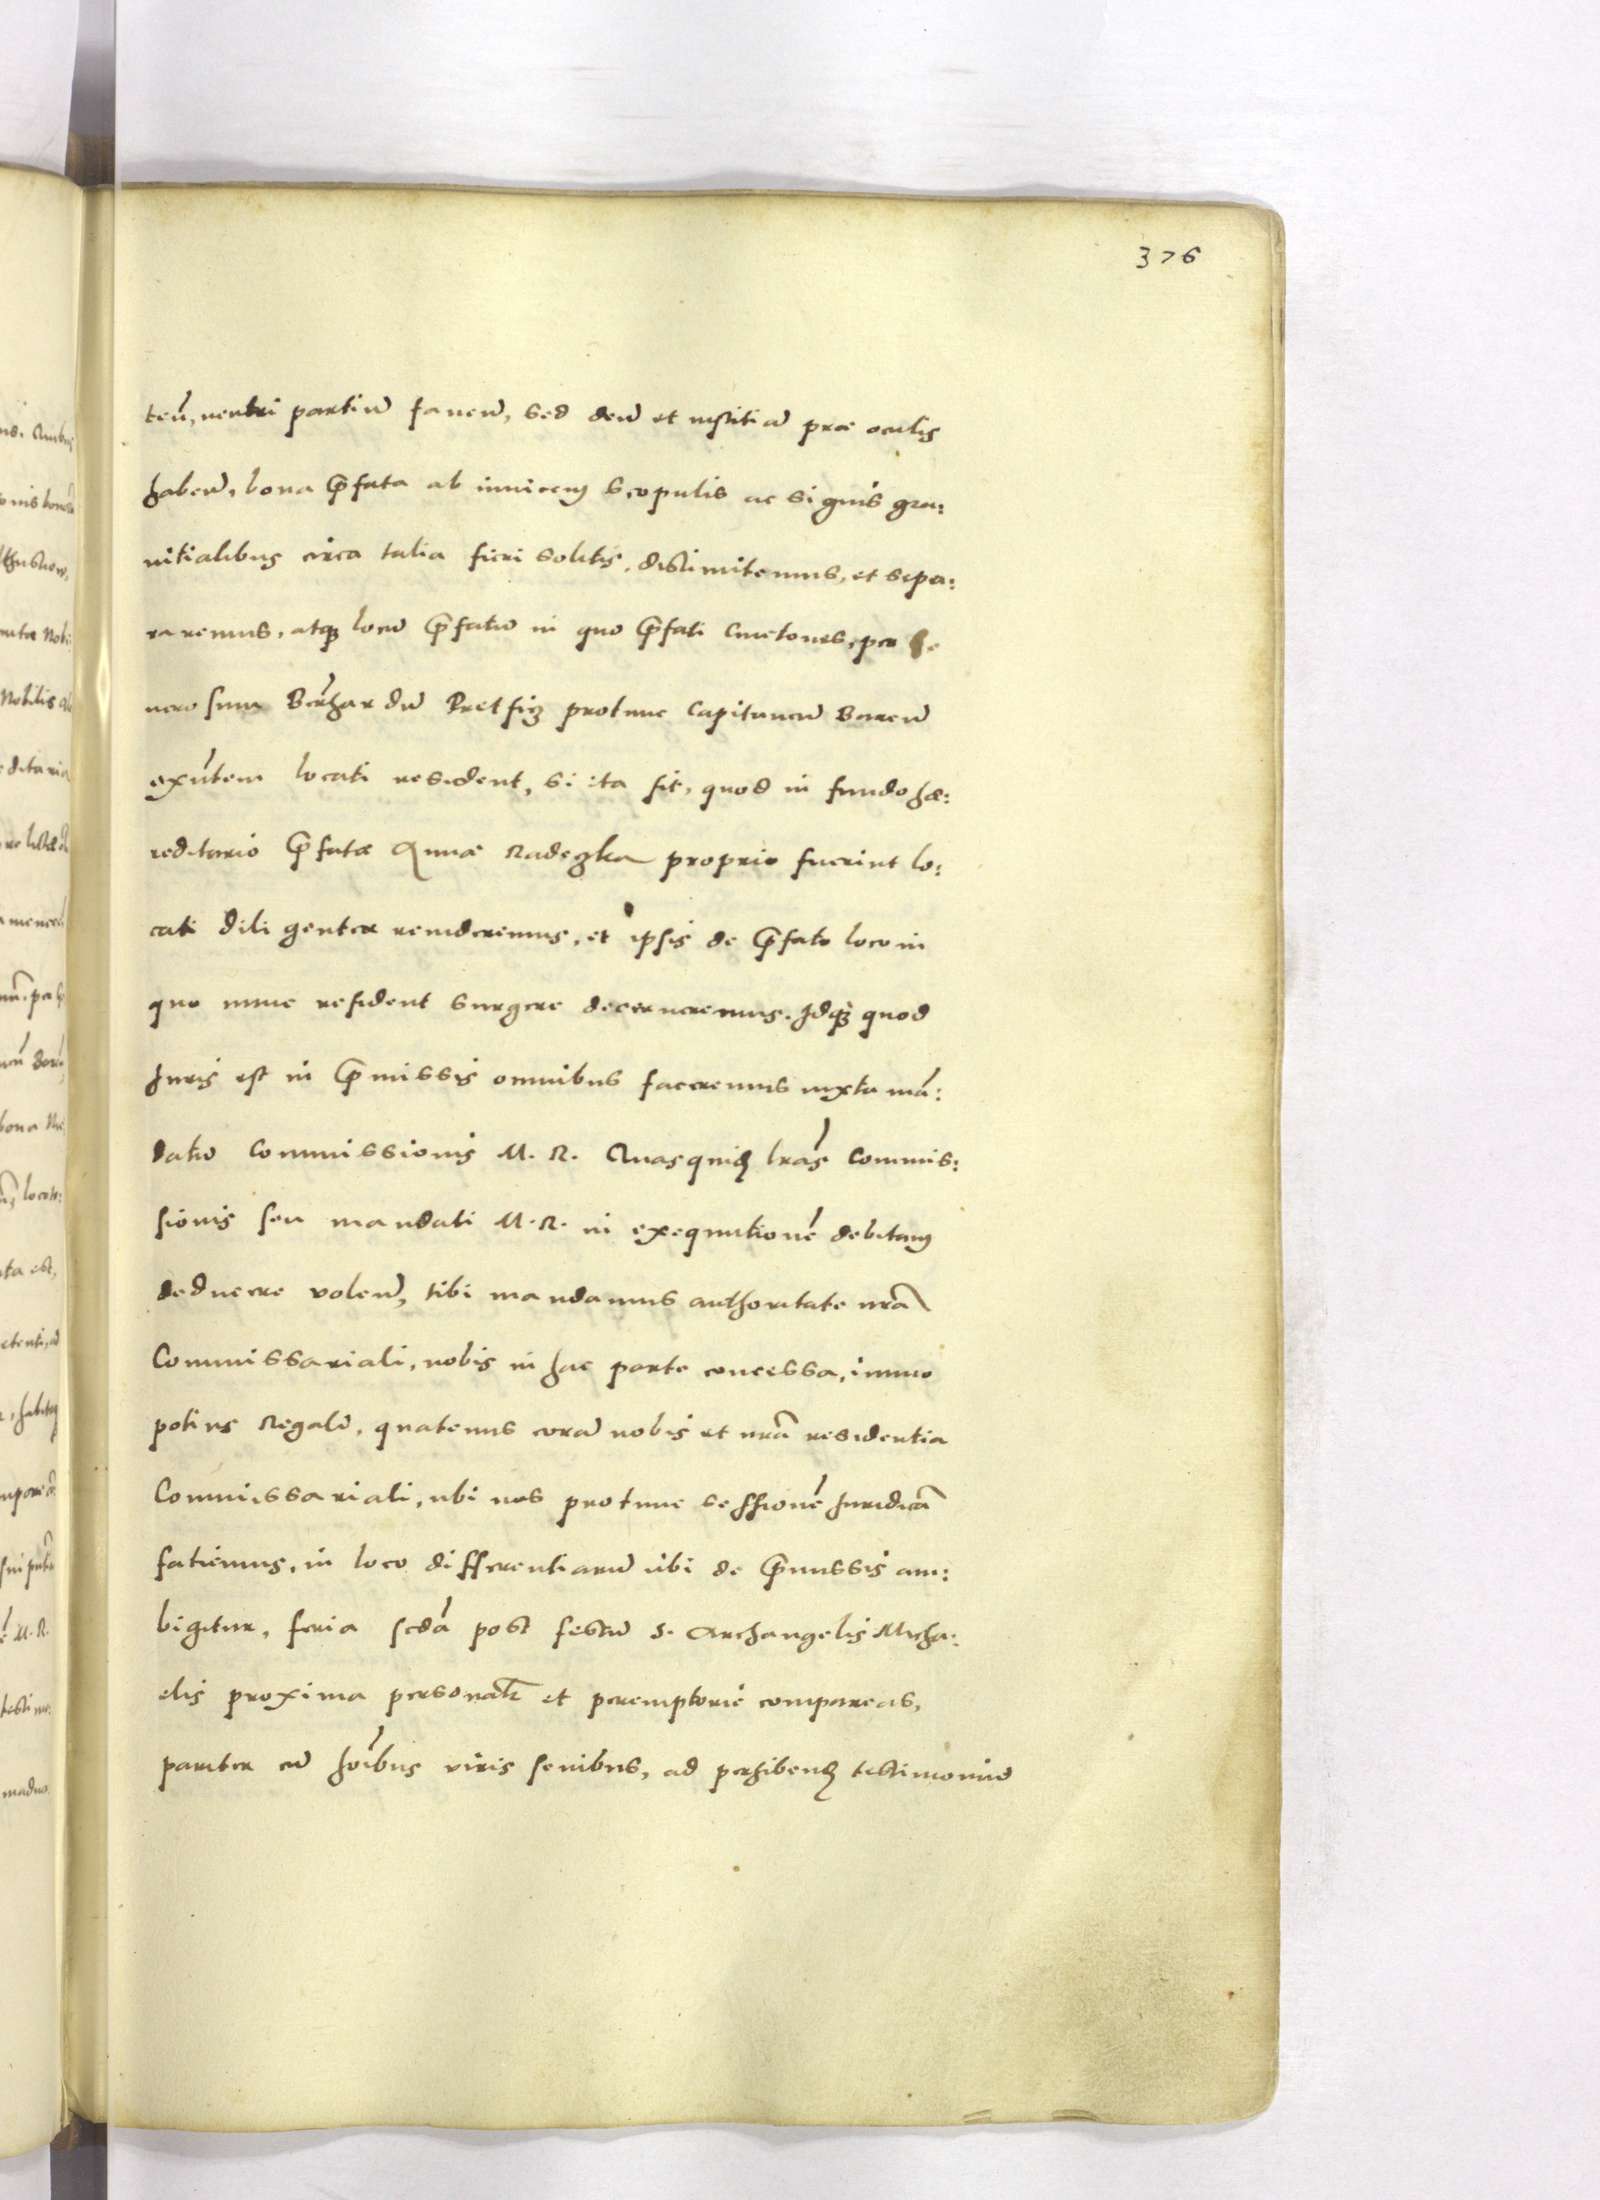 376
teū, neutri partiū faueñ, sed deū et iustitiā prae oculis
habeñ, bona p̄fata ab inuicem scopulis ac signis gra:
nitialibus circa talia fieri solitis, distimitemus, et sepa:
raremus, atq; locū p̄fatū in quo p̄fati Cmetones, per Ge
nerosum Berhardū Pretficz protunc Capitaneū Bareñ
exn̄tem locati resident, si ita sit, quod in fundo hæ:
reditario p̄fatæ Annæ Radegka proprio fuerint lo:
cati diligenter uideremus, et ipsis de p̄fato loco in
quo nunc resident surgere decerneremus. Idq; quod
Juris est in p̄missis omnibus faceremus iuxta mā:
datū Commissionis M. R. Quasquid l̄ras Commis:
sionis seu mandati M. R. in exequutionē debitam
deducere voleñ, tibi mandamus authoritate nrā
Commissariali, nobis in hac parte concessa, immo
potius Regali, quatenus corā nobis et nrā residentia
Commissariali, ubi nos protunc sessionē Juridicā
fatiemus, in loco differentiarū ubi de p̄missis am:
bigitur, feria scdā post festū S. Archangelis Micha:
elis proxima personalr et peremptorie compareas,
pariter cū hoībus viris senibus, ad perhibend testimoniū